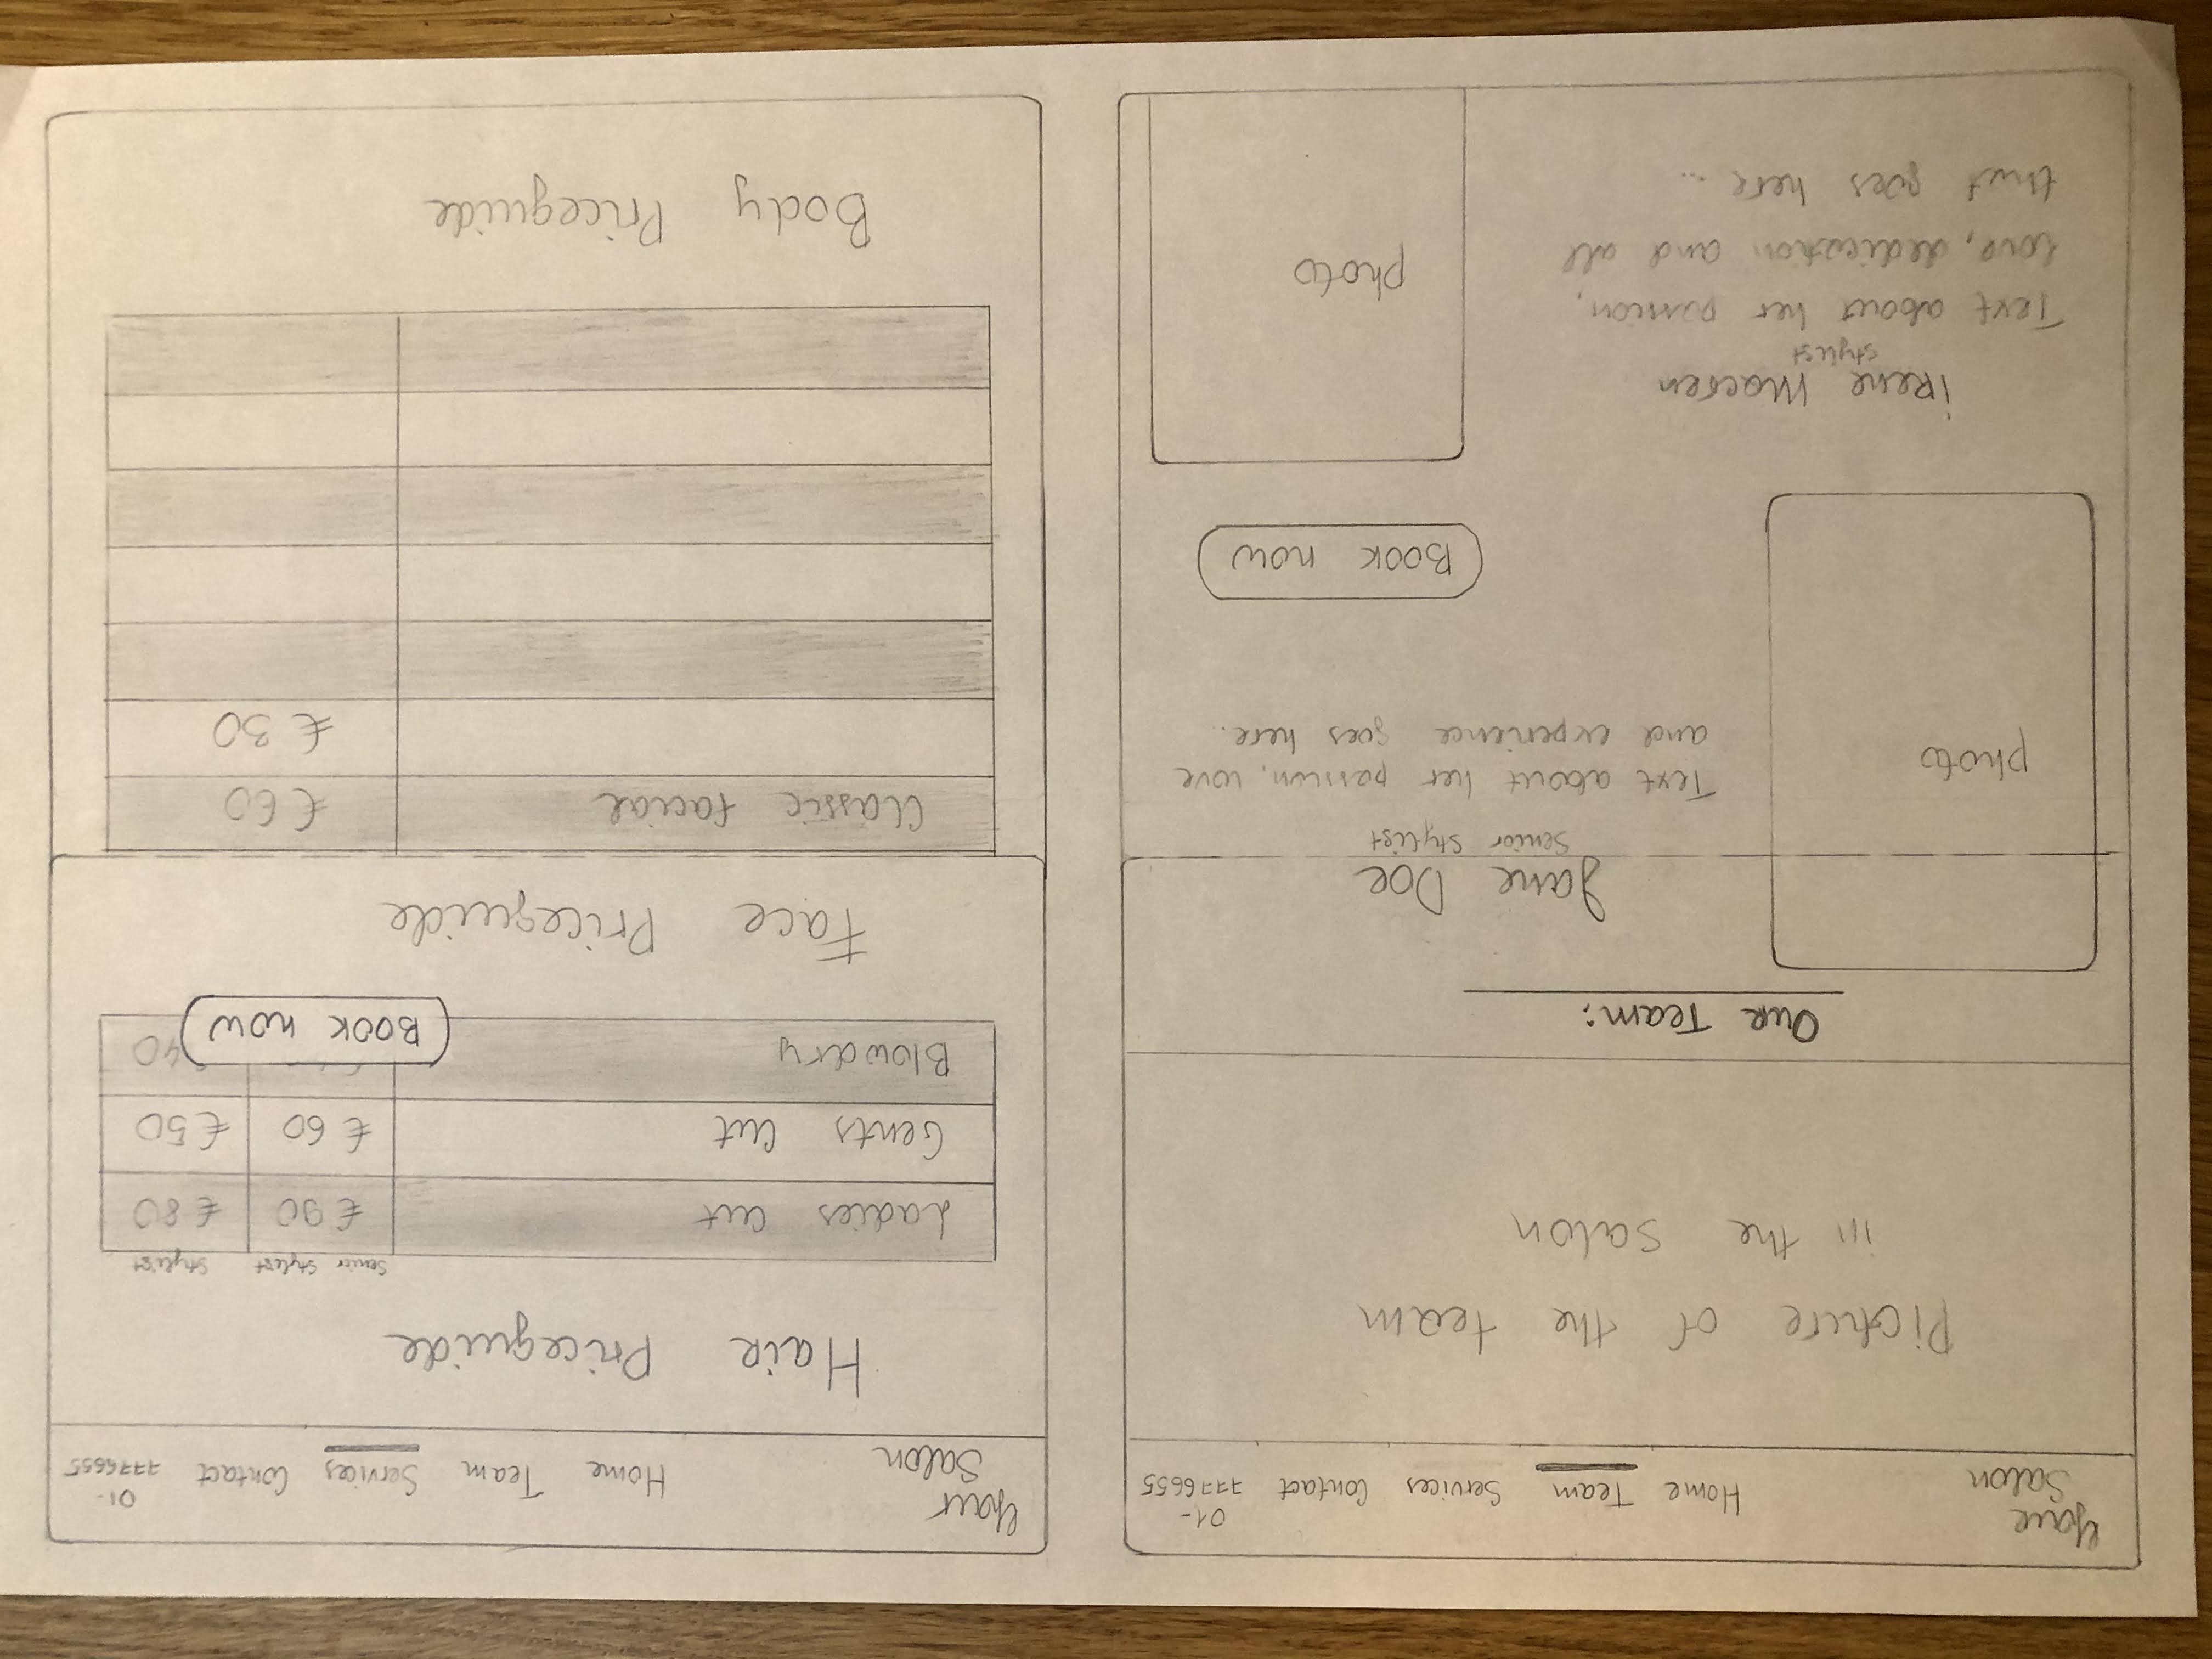 Your
Salon
Home Team Services Contact 01-
7776655
Picture of the team
in the salon
Our Team:
photo
Jane Doe
Senior Stylist
Text about her passion, love
and experience goes here..
Book now
Irene Macren
stylist
Text about her passion,
love, dedication and all
that goes here ...
photo
Your
Salon
Home Team Services Contact 01-
7776655
Hair Priceguide
Senior Stylist Stylist
Ladies cut € 90 € 80
Gents cut € 60 € 50
Blowdry 40
Book now
Face Priceguide
Classic facial € 60
€ 30
Body Priceguide